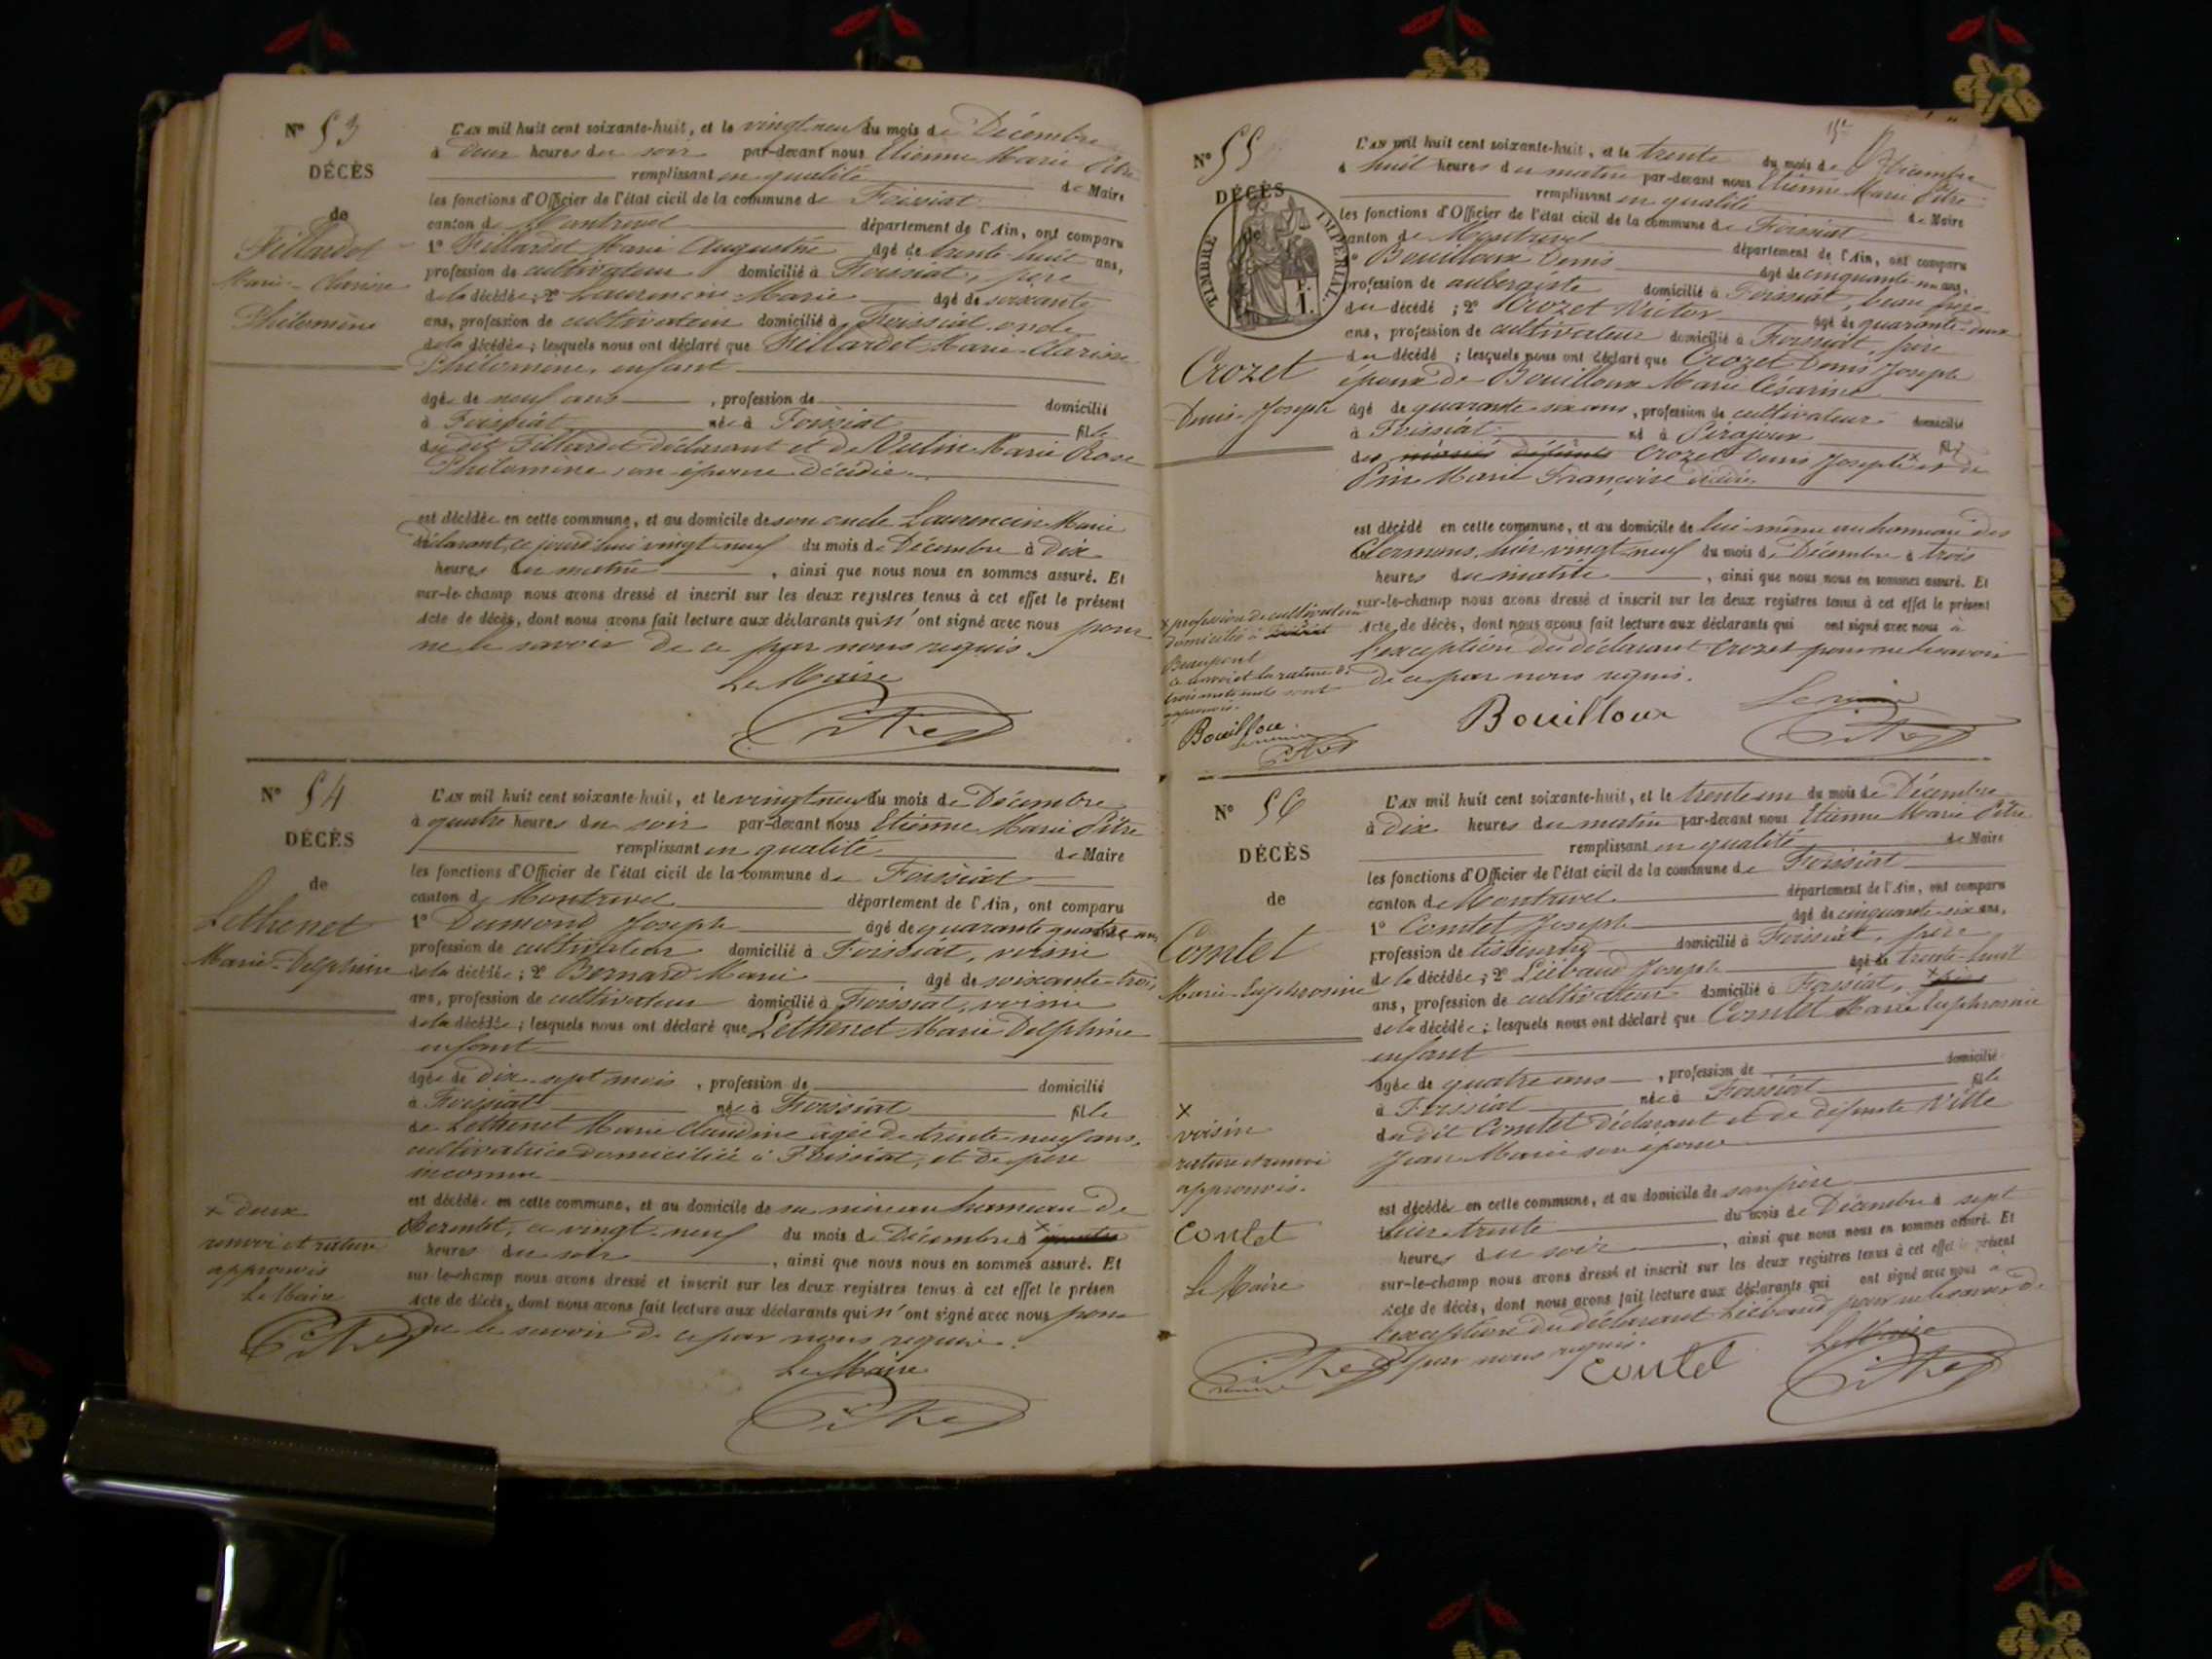 N° 53
DÉCÈS
de
Fillardet
Marie-Clarisse
Philomène
L'AN mil huit cent soixante-huit, et le vingt neuf du mois de Décembre
à deux heures du soir par-devant nous Etienne Marie Pitre
remplissant en qualité de Maire
les fonctions d'Officier de l'état civil de la commune de Foissiat
canton de Montrevel département de l'Ain, ont comparu
1° Fillardet Marie Augustin âgé de trente huit ans,
profession de cultivateur domicilié à Foissiat, père
de la décédée ; 2° Laurencin Marie âgé de soixante
ans, profession de cultivateur domicilié à Foissiat oncle
de la décédée ; lesquels nous ont déclaré que Fillardet Marie Clarisse
Philomène, enfant
âgée de neuf ans , profession de domicilié
à Foissiat née à Foissiat fille
du dit Fillardet déclarant et de Vulin Marie Rose
Philomène son épouse décédée
est décédée en cette commune, et au domicile de son oncle Laurencin Marie
déclarant, ce jourd'hui vingt neuf du mois de Décembre à dix
heures du matin , ainsi que nous nous en sommes assuré. Et
sur-le-champ nous avons dressé et inscrit sur les deux registres tenus à cet effet le présent
Acte de décès, dont nous avons fait lecture aux déclarants qui n'ont signé avec nous pour
ne le savoir de ce par nous requis.
Le Maire
Pitre
N° 54
DÉCÈS
de
Lethenet
Marie-Delphine
L'AN mil huit cent soixante-huit, et le vingt neuf du mois de Décembre
à quatre heures du soir par-devant nous Etienne Marie Pitre
remplissant en qualité de Maire
les fonctions d'Officier de l'état civil de la commune de Foissiat
canton de Montrevel département de l'Ain, ont comparu
1° Dumond Joseph âgé de quarante quatre ans,
profession de cultivateur domicilié à Foissiat, voisin
de la décédée ; 2° Bernard Marie âgé de soixante-trois
ans, profession de cultivateur domicilié à Foissiat, voisin
de la décédée ; lesquels nous ont déclaré que Lethenet Marie Delphine
enfant
âgée de dix-sept mois , profession de domicilié
à Foissiat née à Foissiat fille
de Lethenet Marie Claudine âgée de trente neuf ans,
cultivatrice domiciliée à Foissiat, et de père
inconnu
est décédée en cette commune, et au domicile de sa mère au hameau de
ce vingt-neuf du mois de Décembre à x quatre
heures du soir , ainsi que nous nous en sommes assuré. Et
sur-le-champ nous avons dressé et inscrit sur les deux registres tenus à cet effet le présen
Acte de décès, dont nous avons fait lecture aux déclarants qui n'ont signé avec nous pour
ne le savoir de ce par nous requis.
Le Maire
Pitre
x deux
renvoi et rature
approuvés
Le Maire
Pitre
N° 55
DÉCÈS
de
TIMBRE IMPÉRIAL
Crozet
Denis-Joseph
L'AN mil huit cent soixante-huit, et le trente du mois de Décembre
à huit heures du matin par-devant nous Etienne Marie Pitre
remplissant en qualité de Maire
les fonctions d'Officier de l'état civil de la commune de Foissiat
canton de Montrevel département de l'Ain, ont comparu
1° Bouilloux Denis âgé de cinquante-un ans,
profession de aubergiste domicilié à Foissiat, beau père
du décédé ; 2° Crozet Victor âgé de quarante-deux
ans, profession de cultivateur domicilié à Foissiat, père
du décédé ; lesquels nous ont déclaré que Crozet Denis Joseph
époux de Bouilloux Marie Césarine
âgé de quarante six ans, profession de cultivateur domicilié
à Foissiat né à Pirajoux fils
des mariés défunts Crozet Denis Joseph x et de
Pin Marie Françoise décédée
est décédé en cette commune, et au domicile de lui-même au hameau des
hier vingt-neuf du mois de Décembre à trois
heures du matin , ainsi que nous nous en sommes assuré. Et
sur-le-champ nous avons dressé et inscrit sur les deux registres tenus à cet effet le présent
Acte de décès, dont nous avons fait lecture aux déclarants qui ont signé avec nous à
l'exception du déclarant Crozet pour ne le savoir
de ce par nous requis.
Bouilloux
Le maire
Pitre
x profession de cultivateur
domicilié à Foissiat
Beaupont
Ce renvoi et la rature de
trois mots nuls sont
approuvés.
Bouilloux
Pitre
N° 56
DÉCÈS
de
Comtet
Marie-Euphrosine
L'AN mil huit cent soixante-huit, et le trente un du mois de Décembre
à dix heures du matin par-devant nous Etienne Marie Pitre
remplissant en qualité de Maire
les fonctions d'Officier de l'état civil de la commune de Foissiat
canton de Montrevel département de l'Ain, ont comparu
1° Comtet Joseph âgé de cinquante-six ans,
profession de tisserand domicilié à Foissiat, père
de la décédée ; 2° Liébaud Joseph âgé de trente-huit
ans, profession de cultivateur domicilié à Foissiat, x père
de la décédée ; lesquels nous ont déclaré que Comtet Marie Euphrosine
enfant
âgée de quatre ans , profession de domicilié
à Foissiat née à Foissiat fille
du dit Comtet déclarant et de défunte Ville
Jean Marie son épouse
est décédée en cette commune, et au domicile de son père
hier trente du mois de Décembre à sept
heures du soir , ainsi que nous nous en sommes assuré. Et
sur-le-champ nous avons dressé et inscrit sur les deux registres tenus à cet effet le présent
Acte de décès, dont nous avons fait lecture aux déclarants qui ont signé avec nous à
l'exception du déclarant Liébaud pour ne le savoir de
ce par nous requis.
Contet
Le Maire
Pitre
x
voisin
rature et renvoi
approuvés.
Contet
Le Maire
Pitre